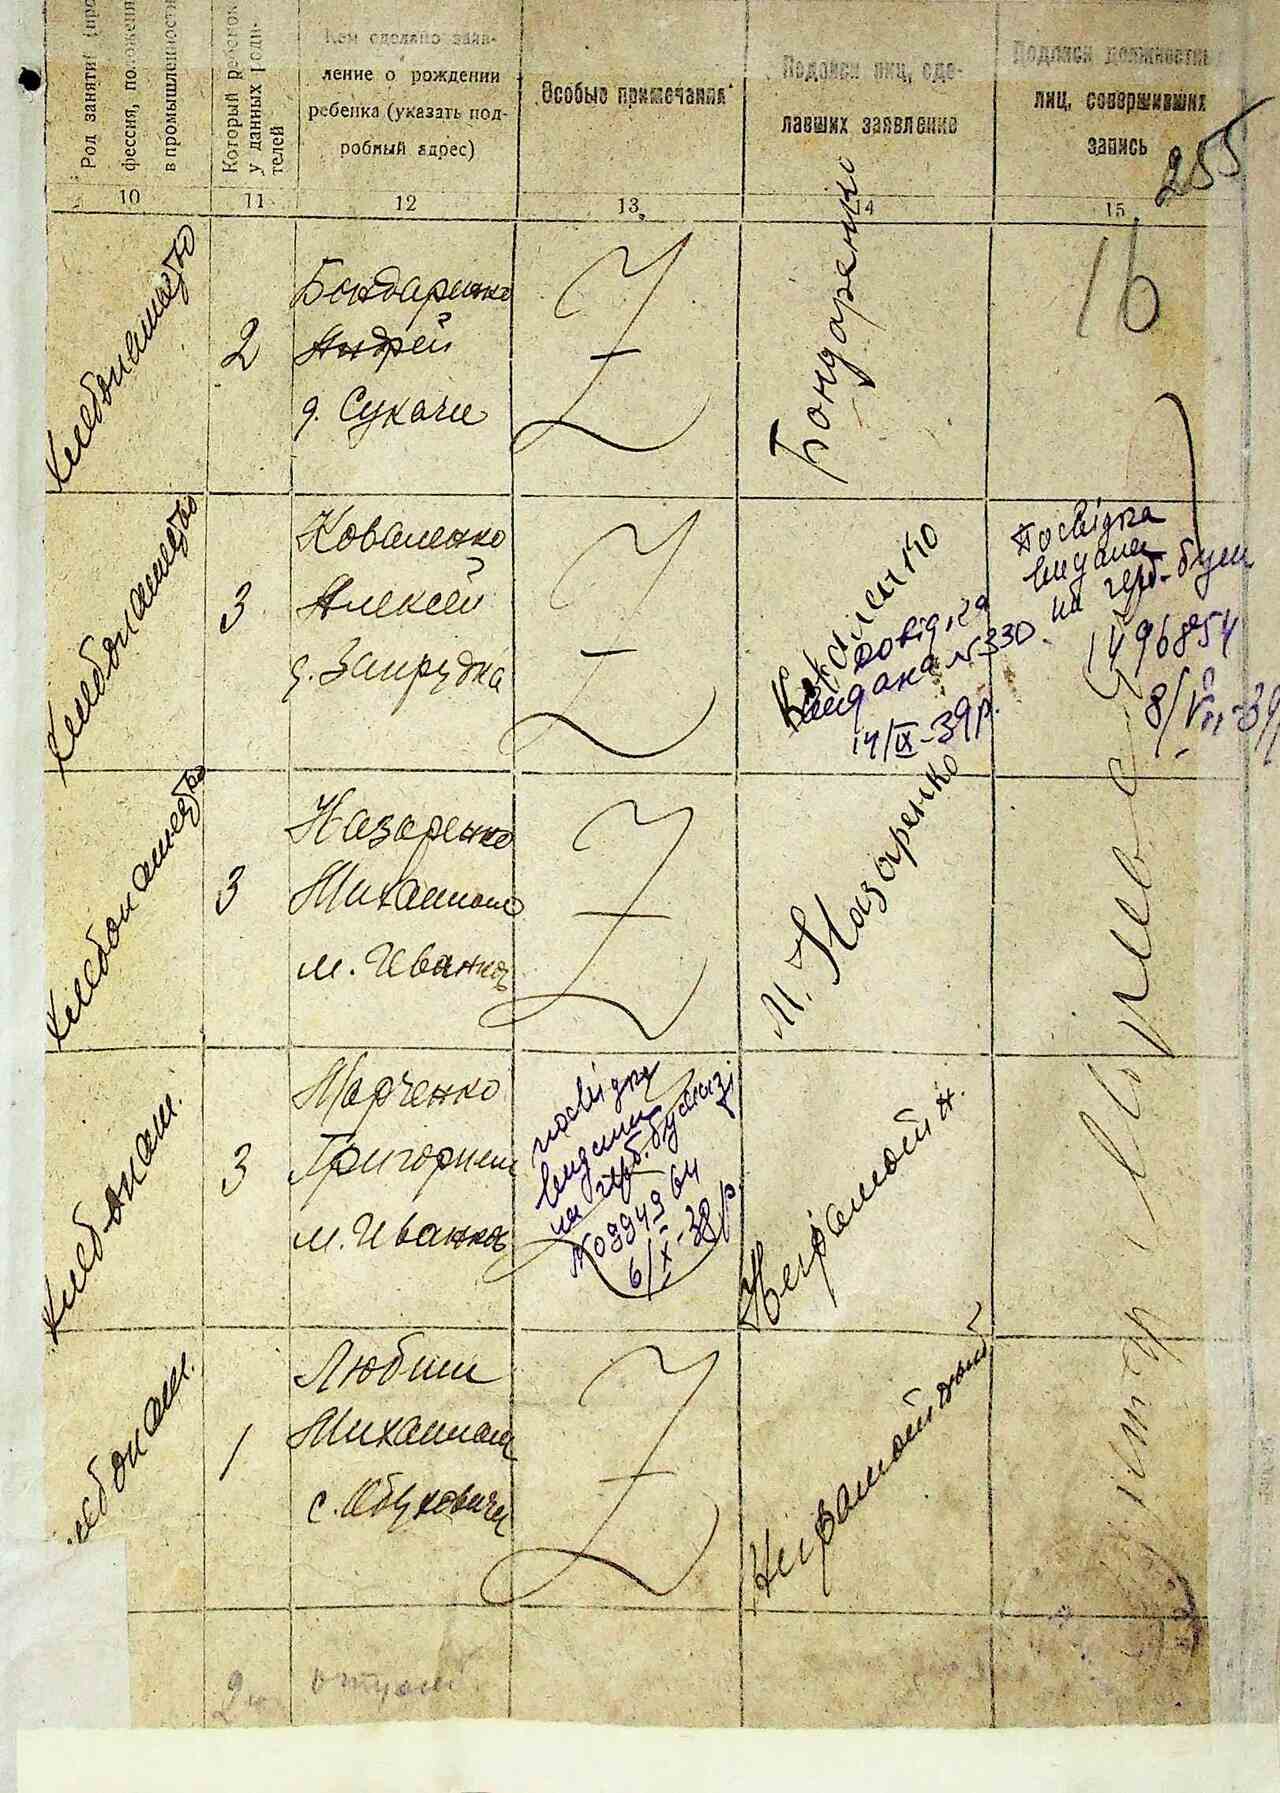 Род занятий
фессия, положени
в промышленност
Который ребенок
у данных роди-
телей
Кем сделано заяв-
ление о рождении
ребенка (указать под-
робный адрес)
Особые примечания
Подписи лиц, сде-
лавших заявление
Подписи должностн
лиц, совершивших
запись
255
10
11
12
13
14
15
16
Хлебопашество
2
Бондаренко
Андрей
д. Сукачи
Бондаренко
Хлебопашество
3
Коваленко
Алексей
д. Запрудка
Коваленко
Довідка
видана №330
14/IX-39р.
Посвідка
видана
на герб. бум
1496854
8/VII-39
Хлебопашество
3
Назаренко
Михаилом
м. Иванков
М. Назаренко
Хлебопаш.
3
Марченко
Григорием
м. Иванков
посвідка
видана
на герб. бумазі
№09949 64
6/X-38р.
Неграмотн.
Хлебопаш.
1
Любим
Михаилом
с. Обуховичи
Неграмотный